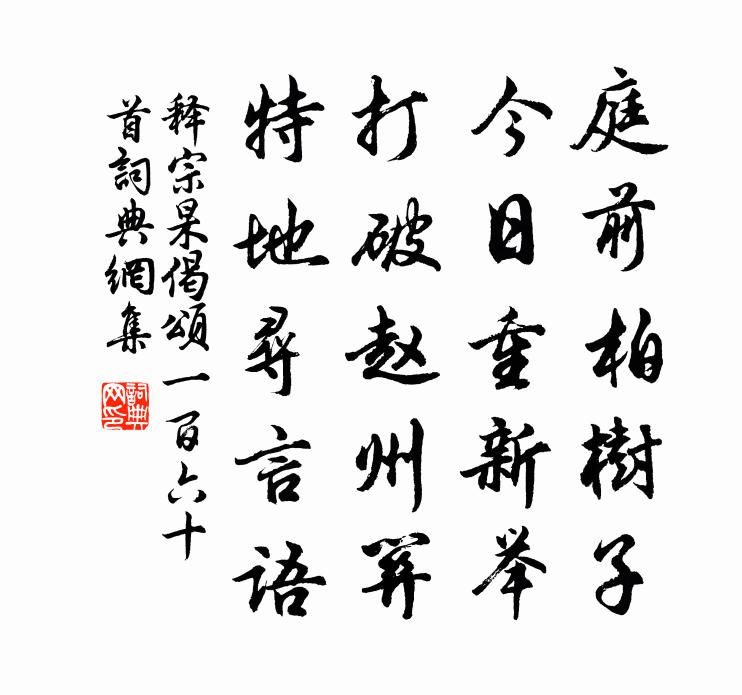 庭前柏樹子
今日重新举
打破赵州關
特地尋言语
释宗杲偈頌一百六十
首詞典網集
詞典网印